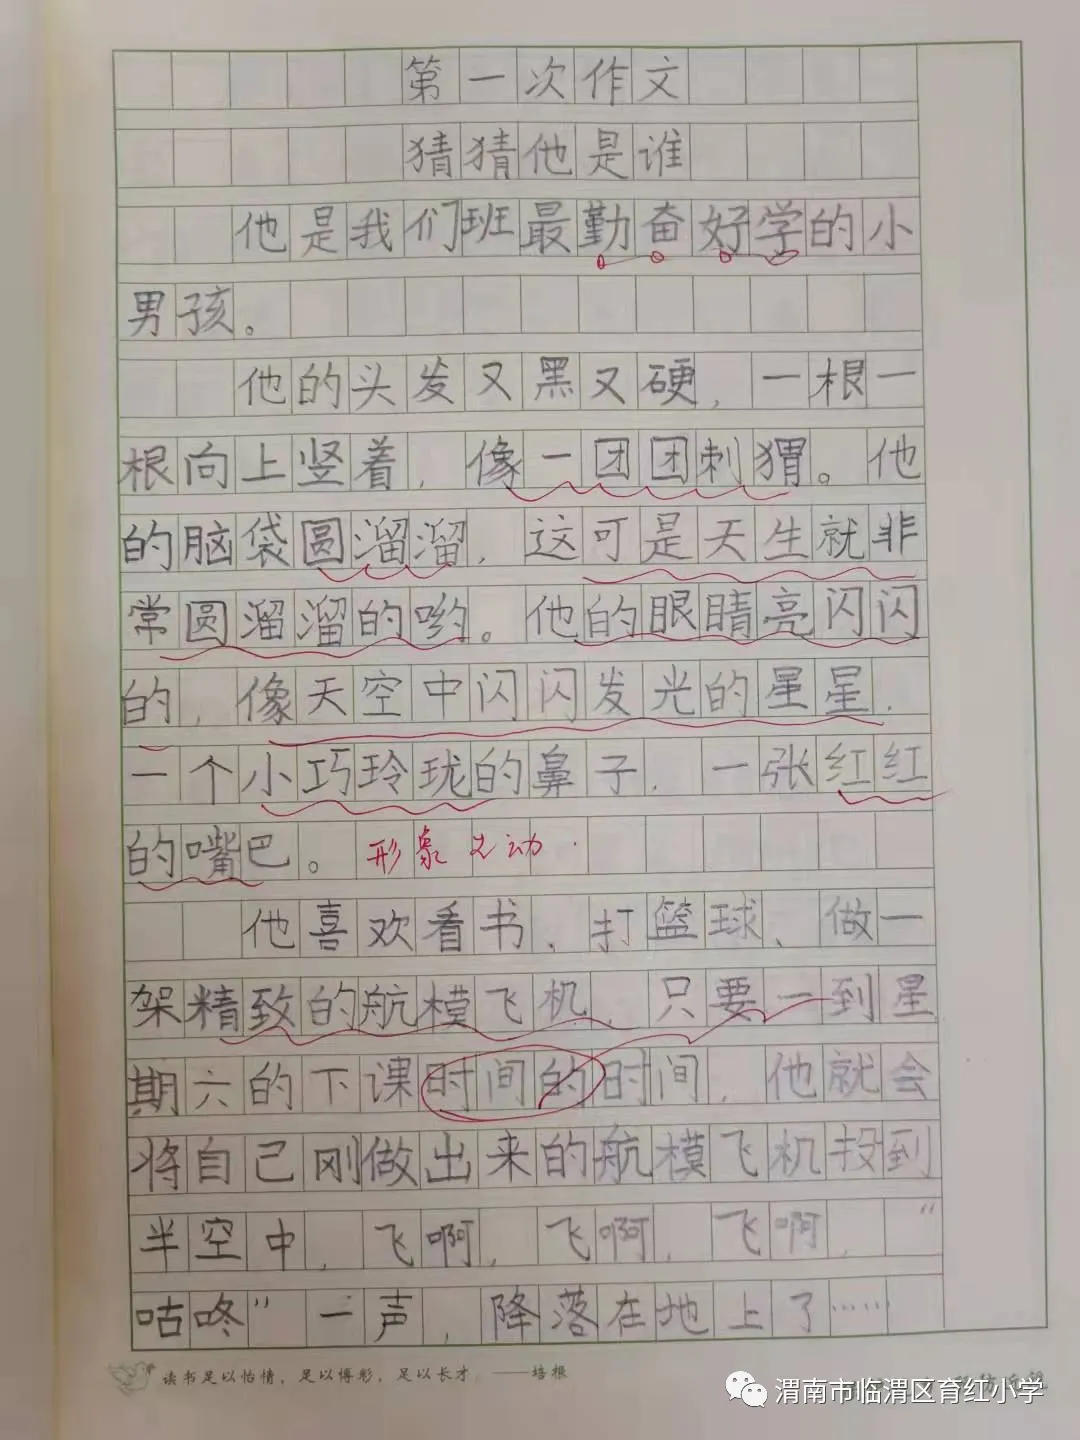 第一次作文
猜猜他是谁
他是我们班最勤奋好学的小
男孩。
他的头发又黑又硬，一根一
根向上竖着，像一团团刺猬。他
的脑袋圆溜溜，这可是天生就非
常圆溜溜的哟。他的眼睛亮闪闪
的，像天空中闪闪发光的星星，
一个小巧玲珑的鼻子，一张红红
的嘴巴。形象生动．
他喜欢看书、打篮球、做一
架精致的航模飞机，只要一到星
期六的下课时间的时间，他就会
将自己刚做出来的航模飞机投到
半空中，飞啊，飞啊，飞啊，“
咕咚”一声，降落在地上了……
读书足以怡情，足以博彩，足以长才。——培根
渭南市临渭区育红小学